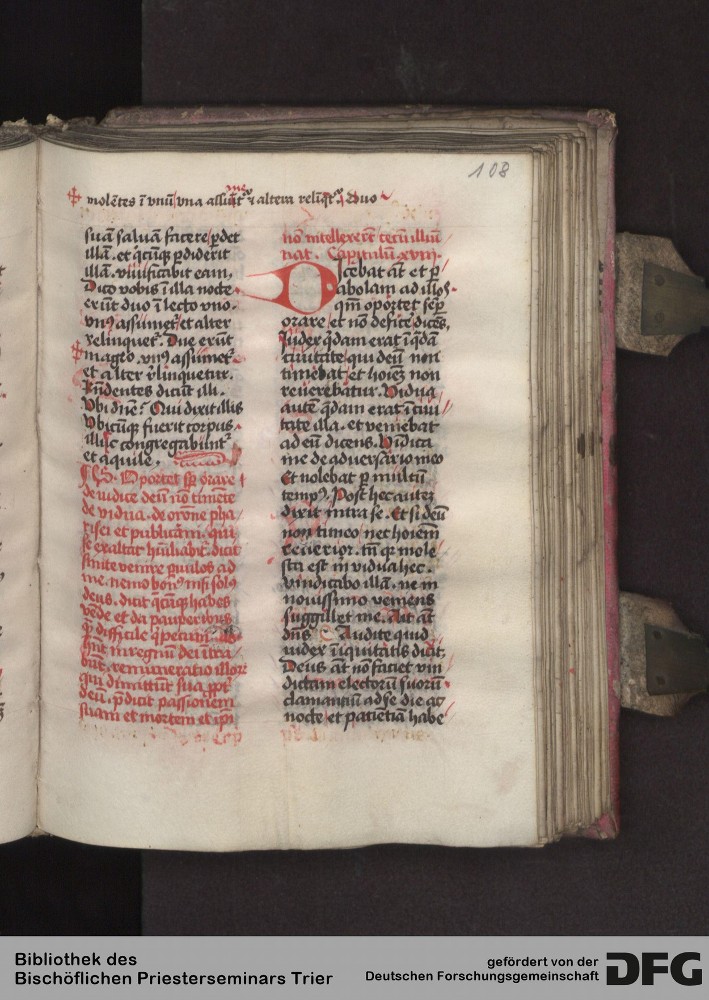 108
molētes ī unū una assumet' & altera relīqt' duo
suā saluā facere pdet
illā. et qcūq pdiderit
illā. viuificabit eam.
Dico vobis ī illa nocte
erūt duo ī lecto uno.
vn9 assumet' et alter
relinquet'. Due erūt
magro. vn9 assumet'
et alter rlinquetur.
Rn̄dentes dicūt illi.
Vbi dn̄e? Qui dixit illis
Vbicūq fuerit corpus.
illic congregabūnt'
et aquile.
Oportet sp orare
de iudice deū nō timēte
de vidua. de orōne pha
risei et publicani. qui
se exaltat hūiliabit'. dicit
sinite venire puulos ad
me. nemo bon9 nisi sol9
deus. dicit qcūq habes
vēde et da pauperibus
q difficile q pecuniā
hn̄t in regnum dei ītra
būt. remuneratio illorz
qui dimittūt sua ppt'
deū. pdicit passionem
suam et mortem et ipi
nō intellexerūt cecū illūi
nat. Capitulū xviij.
Dicebat āt et p
abolam ad illos.
qm̄ oportet sēp
orare et nō deficē dicēs.
Iudex qdam erat ī qdā
ciuitate qui deū non
timebat et hoiēz non
reuerebatur. Vidua
autē qdam erat ī ciui
tate illa. et veniebat
ad eū dicens. Vīdica
me de aduersario meo
Et nolebat p multū
temp9. Post hec autez
dixit intra se. Et si deū
non timeo nec hoiēm
reuereor. tn̄ q mole
sta est m̄ vidua hec.
vindicabo illā. ne in
nouissimo veniens
suggillet me. Ait āt
dn̄s Audite quid
iudex īiquitatis dicit.
Deus āt nō faciet vin
dictam electorū suorū
clamantiū ad se die ac
nocte et patiētiā habe
Bibliothek des
Bischöflichen Priesterseminars Trier
gefördert von der
Deutschen Forschungsgemeinschaft
DFG